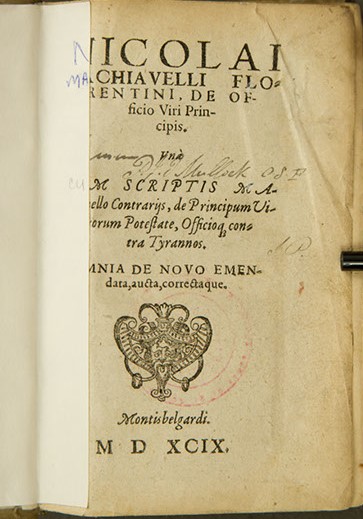 NICOLAI
MACHIAVELLI FLO-
RENTINI, DE OF-
ficio Viri Prin-
cipis.
Vnà
CUM SCRIPTIS MA-
ello Contrarijs, de Principum Vi-
orum Poteſtate, Officioq; con-
tra Tyrannos.
MNIA DE NOVO EMEN-
data, aucta, correctaque.
Montisbelgardi.
M D XCIX.